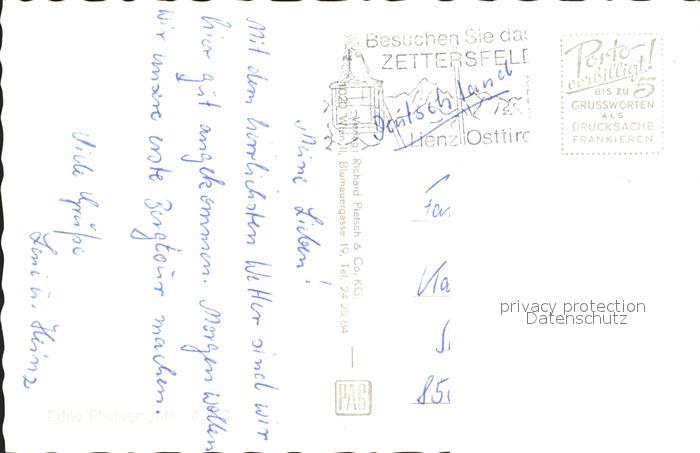 Meine Lieben!
Mit dem herrlichsten Wetter sind wir
hier gut angekommen. Morgen wollen
wir unsere erste Bergtour machen.
Viele Grüße
Leni u. Heinz
Echto Photographie
Verlag: Richard Pietsch & Co. KG,
1020 Wien, Blumauergasse 19, Tel. 24 25 84
PAG
Besuchen Sie das
ZETTERSFELD
Lienz/Osttiro
Deutschland
Porto
verbilligt!
5
BIS ZU
GRUSSWORTEN
ALS
DRUCKSACHE
FRANKIEREN
Fa
850
privacy protection
Datenschutz